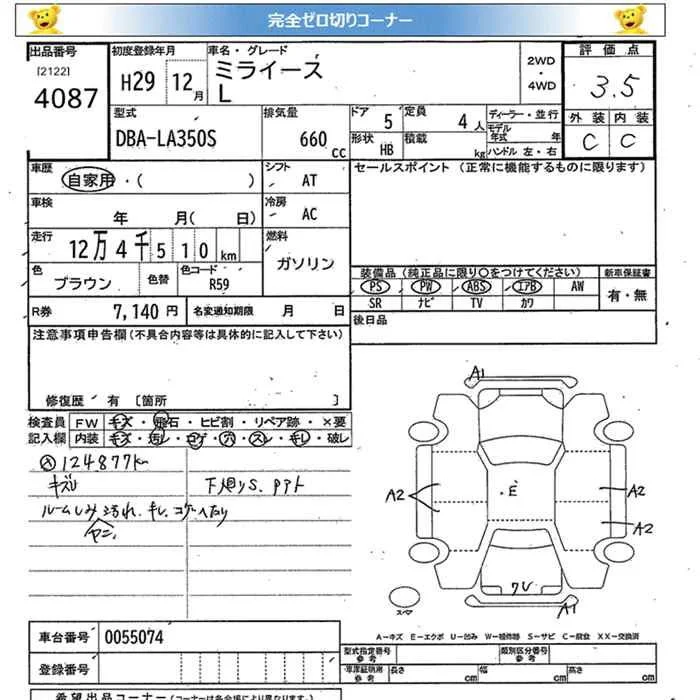 完全ゼロ切りコーナー
出品番号 初度登録年月 車名・グレード 評価点
[2122] 4087
H29 12月
ミライース
L
2WD・4WD
3.5
型式 排気量 ドア 5 定員 4人 ディーラー・並行 外装 内装
DBA-LA350S 660cc
形状 HB 積載 kg モデル年式 年
ハンドル 左・右
C C
車歴 自家用・( ) シフト AT セールスポイント (正常に機能するものに限ります)
車検 年 月( 日) 冷房 AC
走行 12万4千510km 燃料 ガソリン
色 ブラウン 色替 色コード R59
装備品 (純正品に限り○をつけてください) 新車保証書
PS PW ABS エアB AW 有・無
SR ナビ TV カワ
R券 7,140円 名変通知期限 月 日
後日品
注意事項申告欄(不具合内容等は具体的に記入して下さい)
修復歴 有 [箇所 ]
検査員 FW キズ・飛石・ヒビ割・リペア跡・×要
記入欄 内装 キズ・汚レ・コゲ・穴・スレ・キレ・破レ
124877km
キズし 下廻りS.
A1
A2 E A2
A2
A1
スペア
A-キズ E-エクボ U-凹み W-補修跡 S-サビ C-腐食 XX-交換済
車台番号 0055074
登録番号
型式指定番号 参考 類別区分番号 参考
長さ cm 幅 cm 高さ cm
希望出品コーナー(コーナーは各会場により異なります)